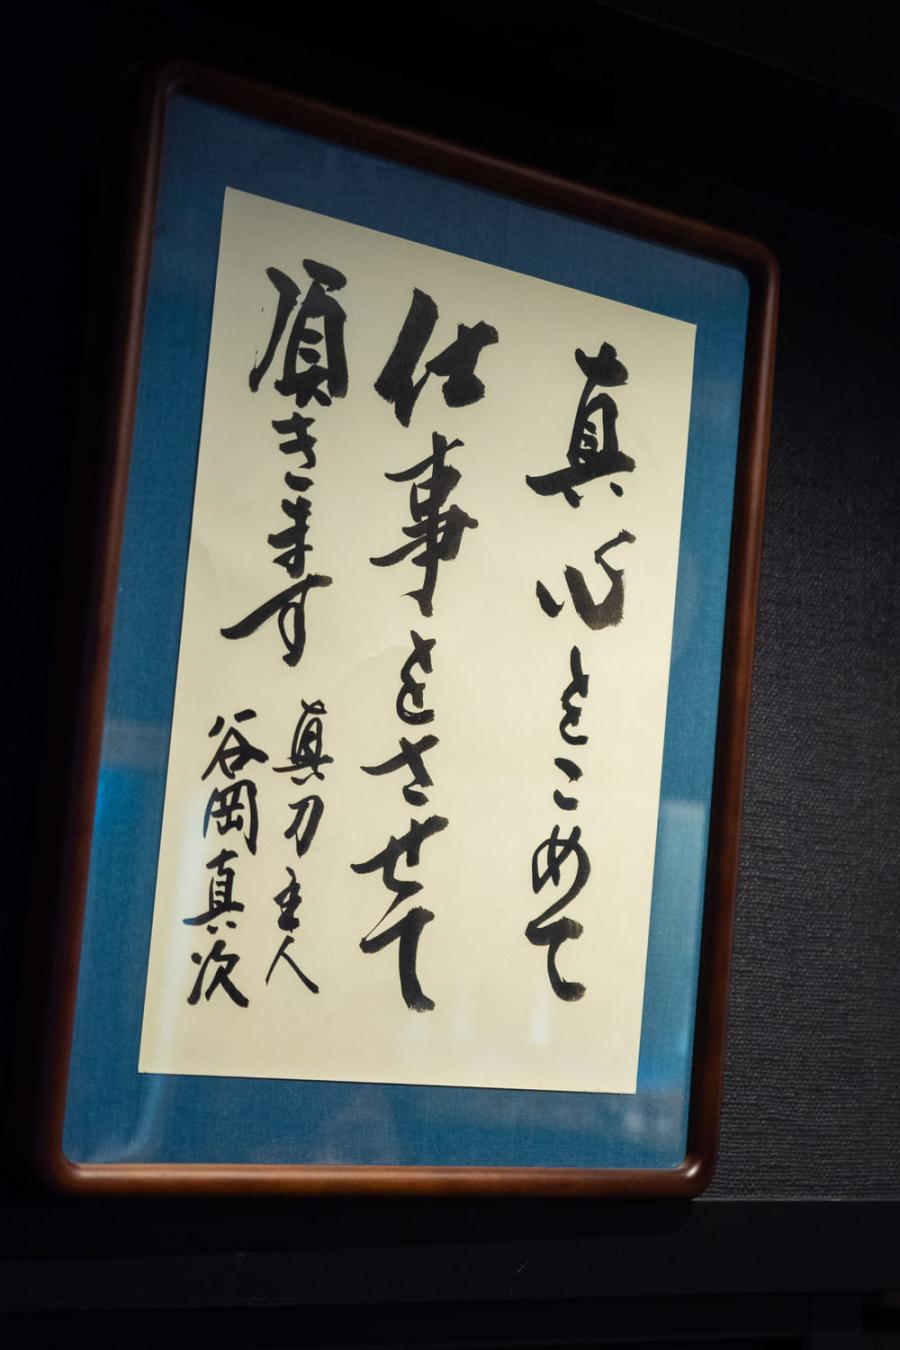 真心をこめて
仕事をさせて
頂きます
真刀 主人
谷岡真次